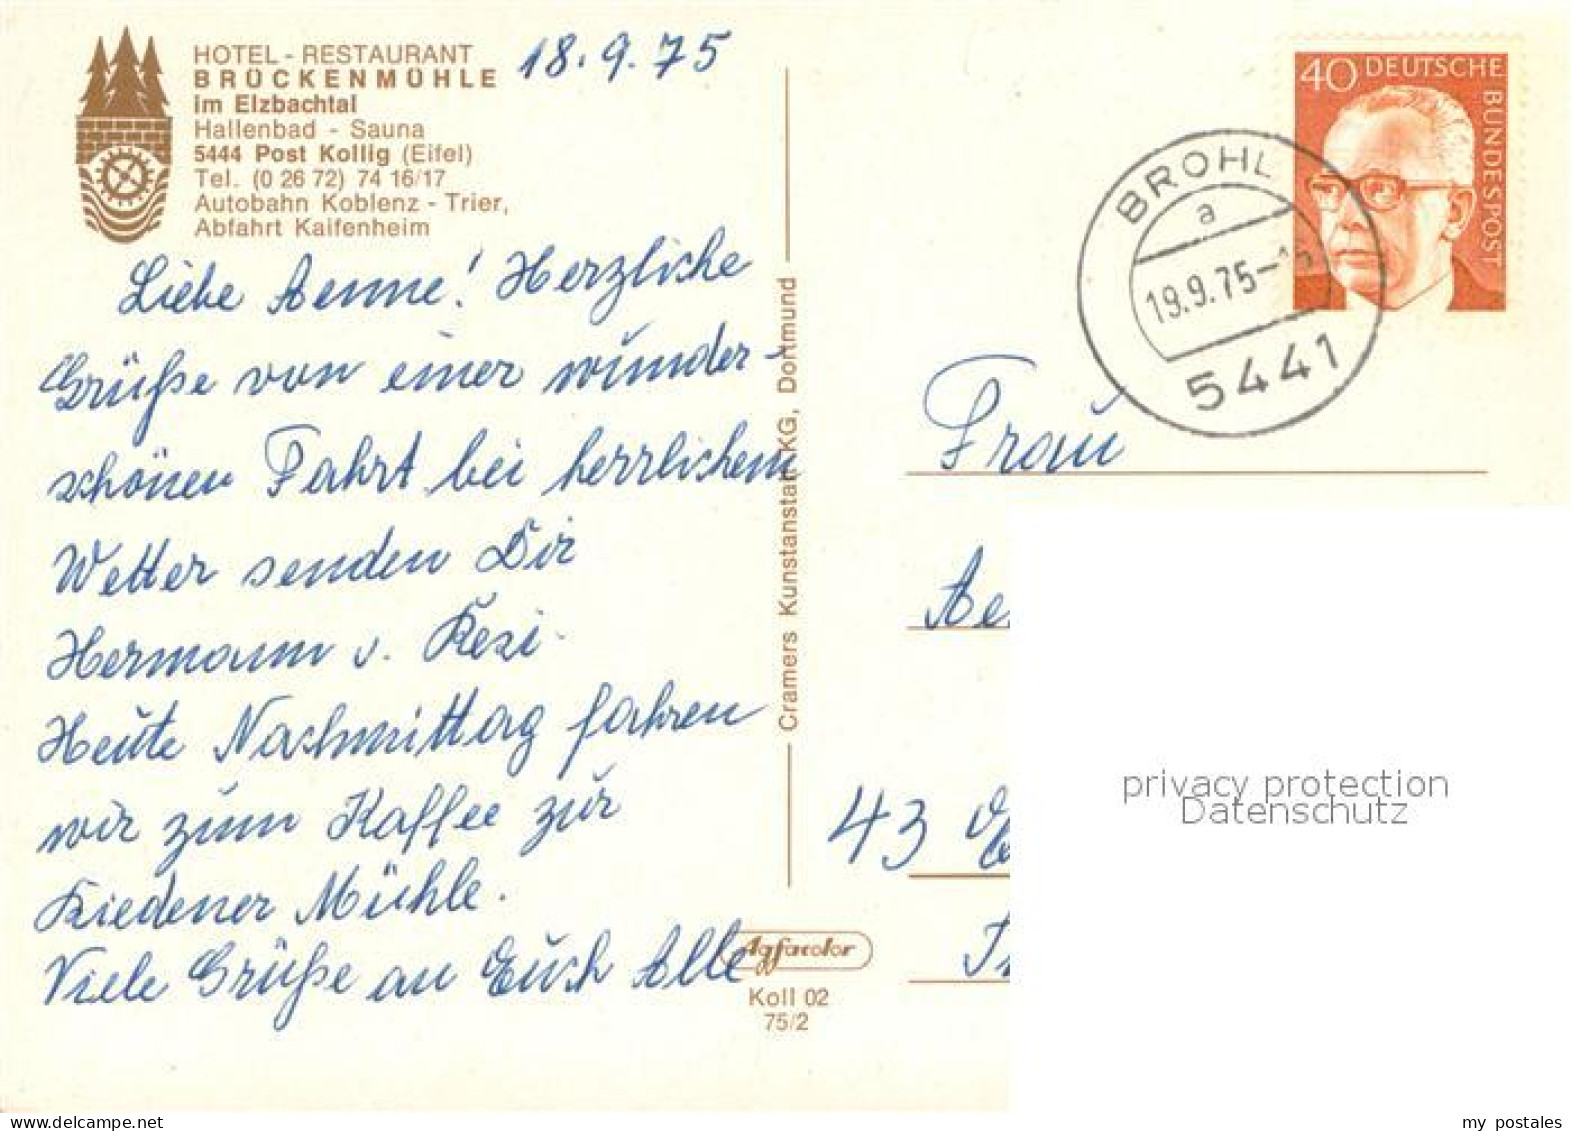 HOTEL - RESTAURANT
BRÜCKENMÜHLE
im Elzbachtal
Hallenbad - Sauna
5444 Post Kollig (Eifel)
Tel. (0 26 72) 74 16/17
Autobahn Koblenz - Trier,
Abfahrt Kaifenheim
18.9.75
Liebe Aenne! Herzliche
Grüße von einer wunder-
schönen Fahrt bei herrlichem
Wetter senden Dir
Hermann u. Resi.
Heute Nachmittag fahren
wir zum Kaffee zur
Riedener Mühle.
Viele Grüße an Euch Alle
Cramers Kunstanstalt KG, Dortmund
Agfacolor
Koll 02
75/2
40 DEUTSCHE
BUNDESPOST
BROHL
a
19.9.75-
5441
Frau
Ae
43
privacy protection
Datenschutz
my postales